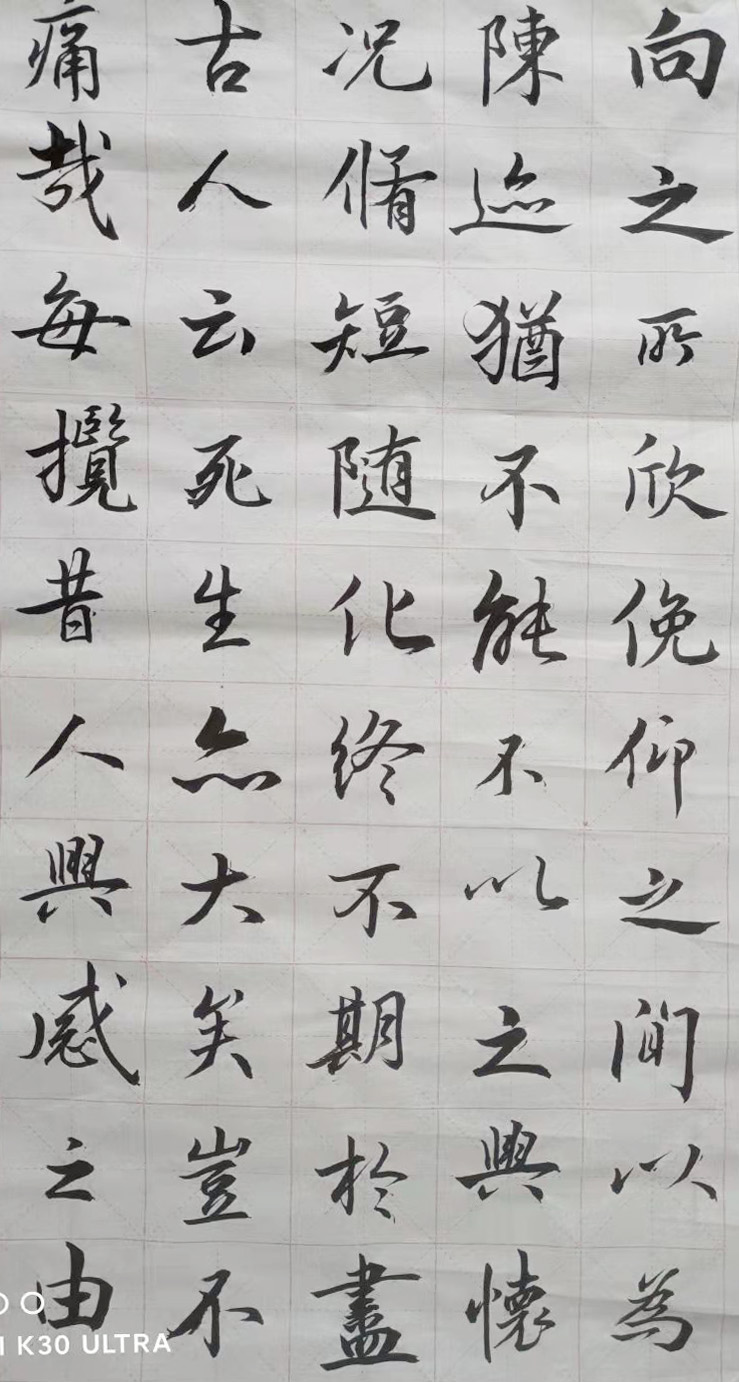 向之所欣俛仰之间以為
陳迹猶不能不以之興懷
况脩短随化终不期於盡
古人云死生亦大矣豈不
痛哉每攬昔人興感之由
K30 ULTRA